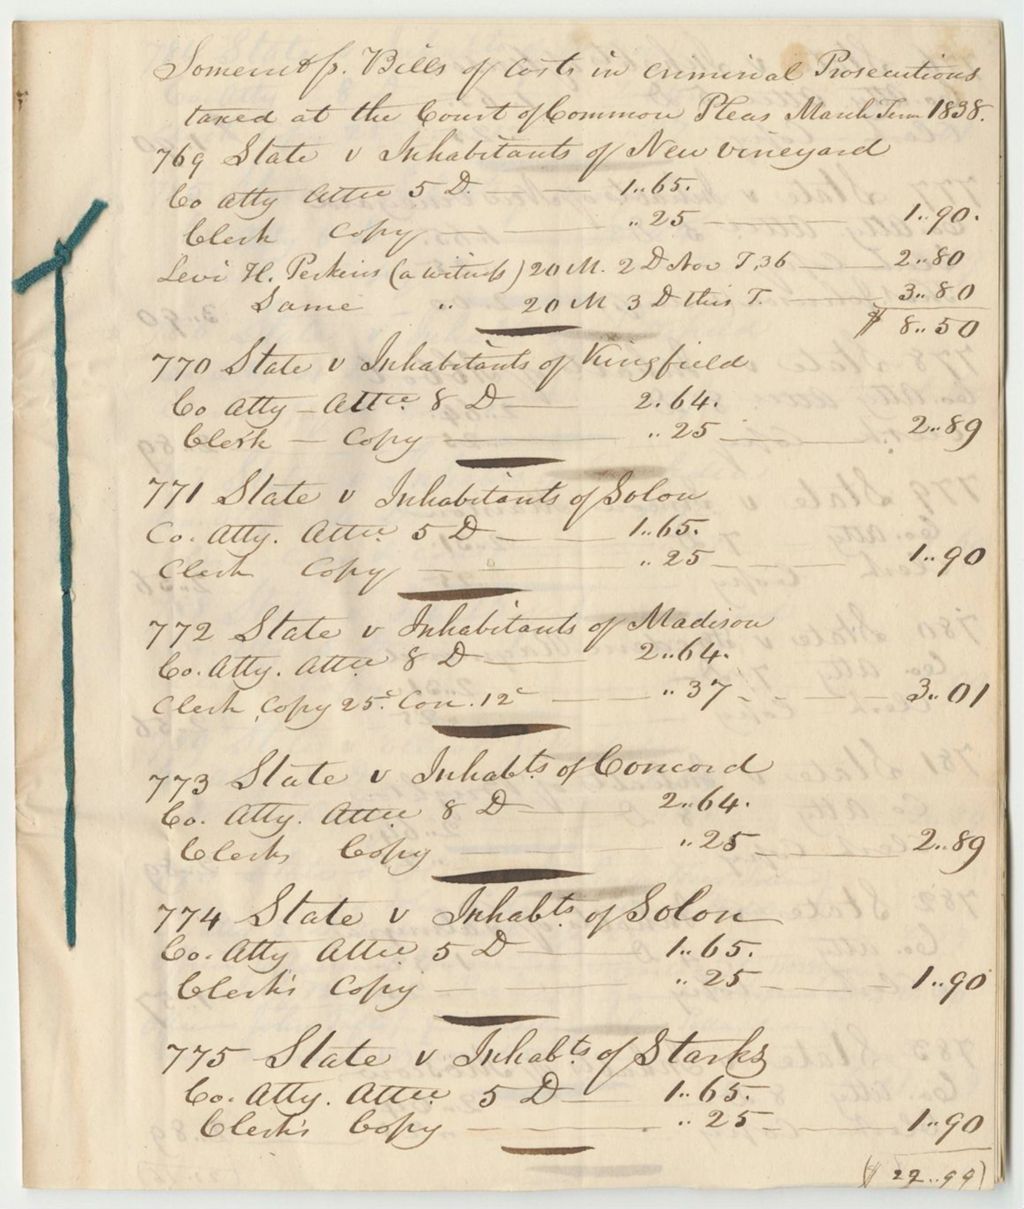 Somerset ss. Bills of Costs in criminal Prosecutions
taxed at the Court of Common Pleas March Term 1838.
769 State v Inhabitants of New vineyard
Co Atty Attce 5 D. 1..65.
Clerk Copy ..25 1..90.
Levi H. Perkins (a witness) 20 M. 2 D Nov T, 36 2..80
Same " 20 M 3 D this T. 3..80
$ 8..50
770 State v Inhabitants of Kingfield
Co Atty - Attce 8 D 2.64.
Clerk - Copy ..25 2..89
771 State v Inhabitants of Solon
Co. Atty. Attce 5 D 1..65.
Clerk Copy ..25 1..90
772 State v Inhabitants of Madison
Co. Atty. Attce 8 D 2..64.
Clerk Copy 25c. Con. 12c ..37 3..01
773 State v Inhabts of Concord
Co. Atty. Attce 8 D 2..64.
Clerks Copy ..25 2..89
774 State v Inhabts of Solon
Co. Atty Attce 5 D 1..65.
Clerk's Copy ..25 1..90
775 State v Inhabts of Starks
Co. Atty. Attce 5 D 1..65.
Clerk's Copy ..25 1..90
($ 22..99)